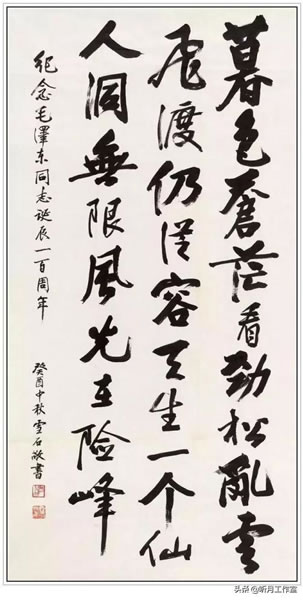 暮色蒼茫看劲松亂雲
飛渡仍從容天生一个仙
人洞無限風光在险峰
纪念毛澤东同志诞辰一百周年
癸酉中秋雪石敬書
头条 @听月工作室